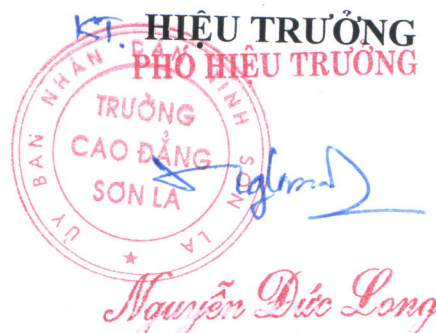 KT. HIỆU TRƯỞNG
PHÓ HIỆU TRƯỞNG
ỦY BAN NHÂN DÂN TỈNH SƠN LA
TRƯỜNG
CAO ĐẲNG
SƠN LA
Nguyễn Đức Long